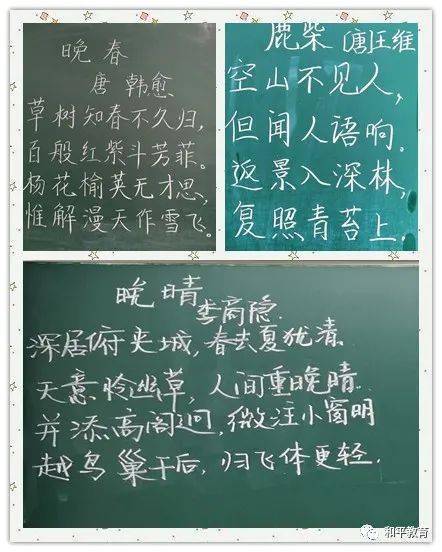 晚春
唐 韩愈
草树知春不久归,
百般红紫斗芳菲。
杨花榆荚无才思,
惟解漫天作雪飞。
鹿柴 (唐)王维
空山不见人,
但闻人语响。
返景入深林,
复照青苔上.
晚晴
李商隐.
深居俯夹城, 春去夏犹清
天意怜幽草, 人间重晚晴
并添高阁迥, 微注小窗明
越鸟巢干后, 归飞体更轻.
和平教育